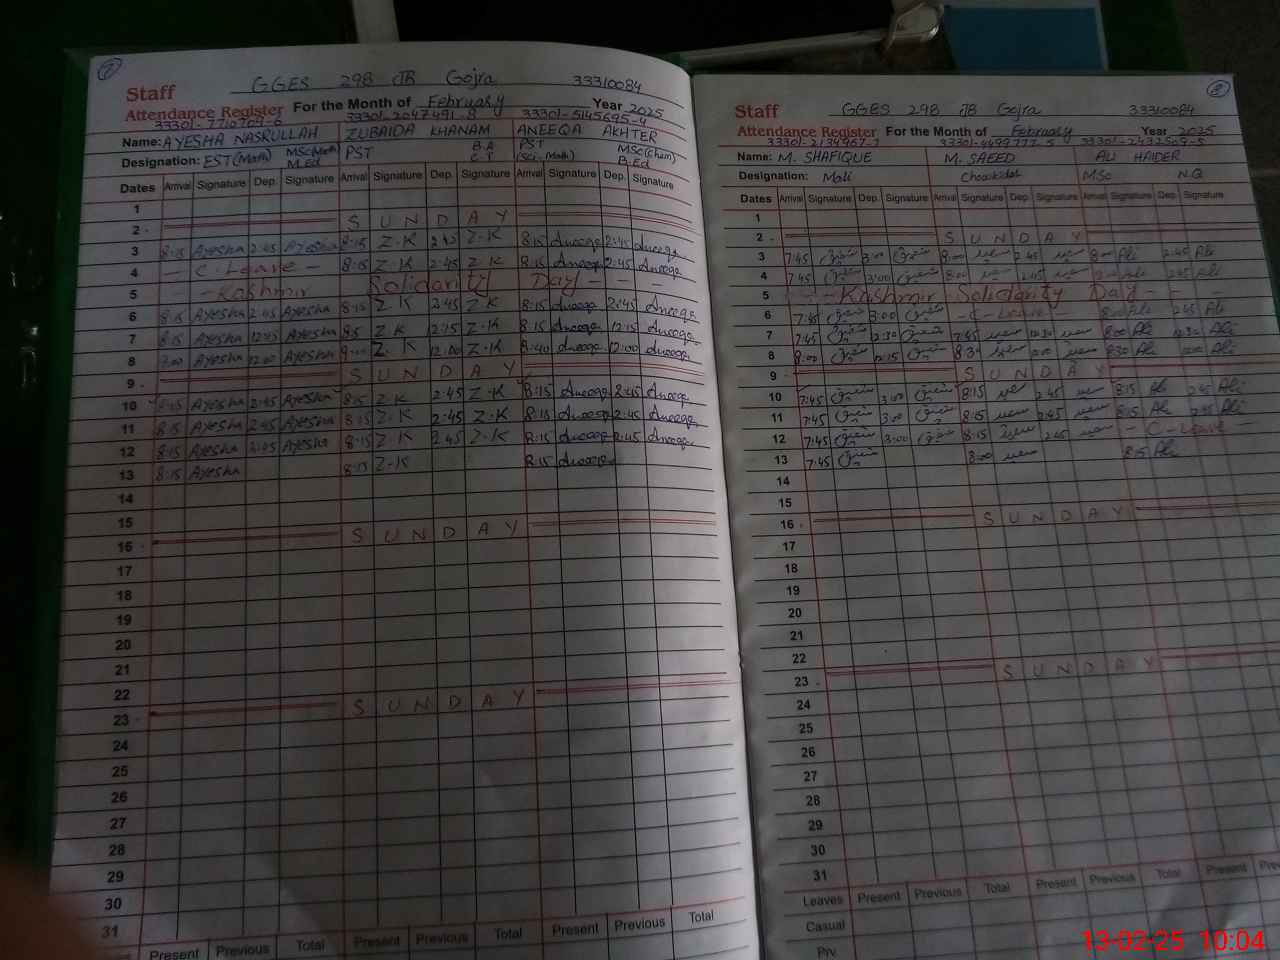 7
GGES 298 JB Gojra 33310084
Staff
Attendance Register For the Month of February Year 2025
33301-7710704-6 33301-2047491-8 33301-5145695-4
Name: AYESHA NASRULLAH ZUBAIDA KHANAM ANEEQA AKHTER
Designation: EST(Math) MSc(Math) M.Ed PST B.A C.T PST (Sci-Math) MSc(Chem) B.Ed
Dates Arrival Signature Dep. Signature Arrival Signature Dep. Signature Arrival Signature Dep. Signature
1
2 SUNDAY
3 8:15 Ayesha 2:45 Ayesha 8:15 Z.K 2:45 Z.K 8:15 Aneeqa 2:45 Aneeqa
4 - C.Leave - 8:15 Z.K 2:45 Z.K 8:15 Aneeqa 2:45 Aneeqa
5 - - Kashmir Solidarity Day - - -
6 8:15 Ayesha 2:45 Ayesha 8:15 Z.K 2:45 Z.K 8:15 Aneeqa 2:45 Aneeqa
7 8:15 Ayesha 12:15 Ayesha 8:15 Z.K 12:15 Z.K 8:15 Aneeqa 12:15 Aneeqa
8 Ayesha 12:00 Ayesha 9:00 Z.K 12:00 Z.K 8:40 Aneeqa 12:00 Aneeqa
9 SUNDAY
10 8:15 Ayesha 2:45 Ayesha 8:15 Z.K 2:45 Z.K 8:15 Aneeqa 2:45 Aneeqa
11 8:15 Ayesha 2:45 Ayesha 8:15 Z.K 2:45 Z.K 8:15 Aneeqa 2:45 Aneeqa
12 8:15 Ayesha 2:45 Ayesha 8:15 Z.K 2:45 Z.K 8:15 Aneeqa 2:45 Aneeqa
13 8:15 Ayesha 8:15 Z.K 8:15 Aneeqa
14
15
16 SUNDAY
17
18
19
20
21
22
23 SUNDAY
24
25
26
27
28
29
30
31
Present Previous Total Present Previous Total Present Previous Total
8
GGES 298 JB Gojra 33310084
Staff
Attendance Register For the Month of February Year 2025
33301-2134967-7 33301-4499777-5 33301-2432509-5
Name: M. SHAFIQUE M. SAEED ALI HAIDER
Designation: Mali Chowkidar M.Sc N.Q
Dates Arrival Signature Dep. Signature Arrival Signature Dep. Signature Arrival Signature Dep. Signature
1
2 SUNDAY
3 7:45 شفیق 3:00 شفیق 8:00 سعید 2:45 سعید 8:00 Ali 2:45 Ali
4 7:45 شفیق 3:00 شفیق 8:00 سعید 2:45 سعید Ali 2:45 Ali
5 - - Kashmir Solidarity Day - - -
6 7:45 شفیق 3:00 شفیق - C-Leave - 8:00 Ali 2:45 Ali
7 7:45 شفیق 12:30 شفیق 7:45 سعید 12:30 سعید 8:00 Ali 12:30 Ali
8 8:00 شفیق 12:15 شفیق 8:30 سعید سعید 8:30 Ali Ali
9 SUNDAY
10 7:45 شفیق 3:00 شفیق 8:15 سعید 2:45 سعید 8:15 Ali 2:45 Ali
11 7:45 شفیق 3:00 شفیق 8:15 سعید 2:45 سعید 8:15 Ali 2:45 Ali
12 7:45 شفیق 3:00 شفیق 8:15 سعید 2:45 سعید - C-Leave -
13 7:45 شفیق 8:00 سعید 8:15 Ali
14
15
16 SUNDAY
17
18
19
20
21
22
23 SUNDAY
24
25
26
27
28
29
30
31
Leaves Present Previous Total Present Previous Total Present
Casual
Prv
13-02-25 10:04